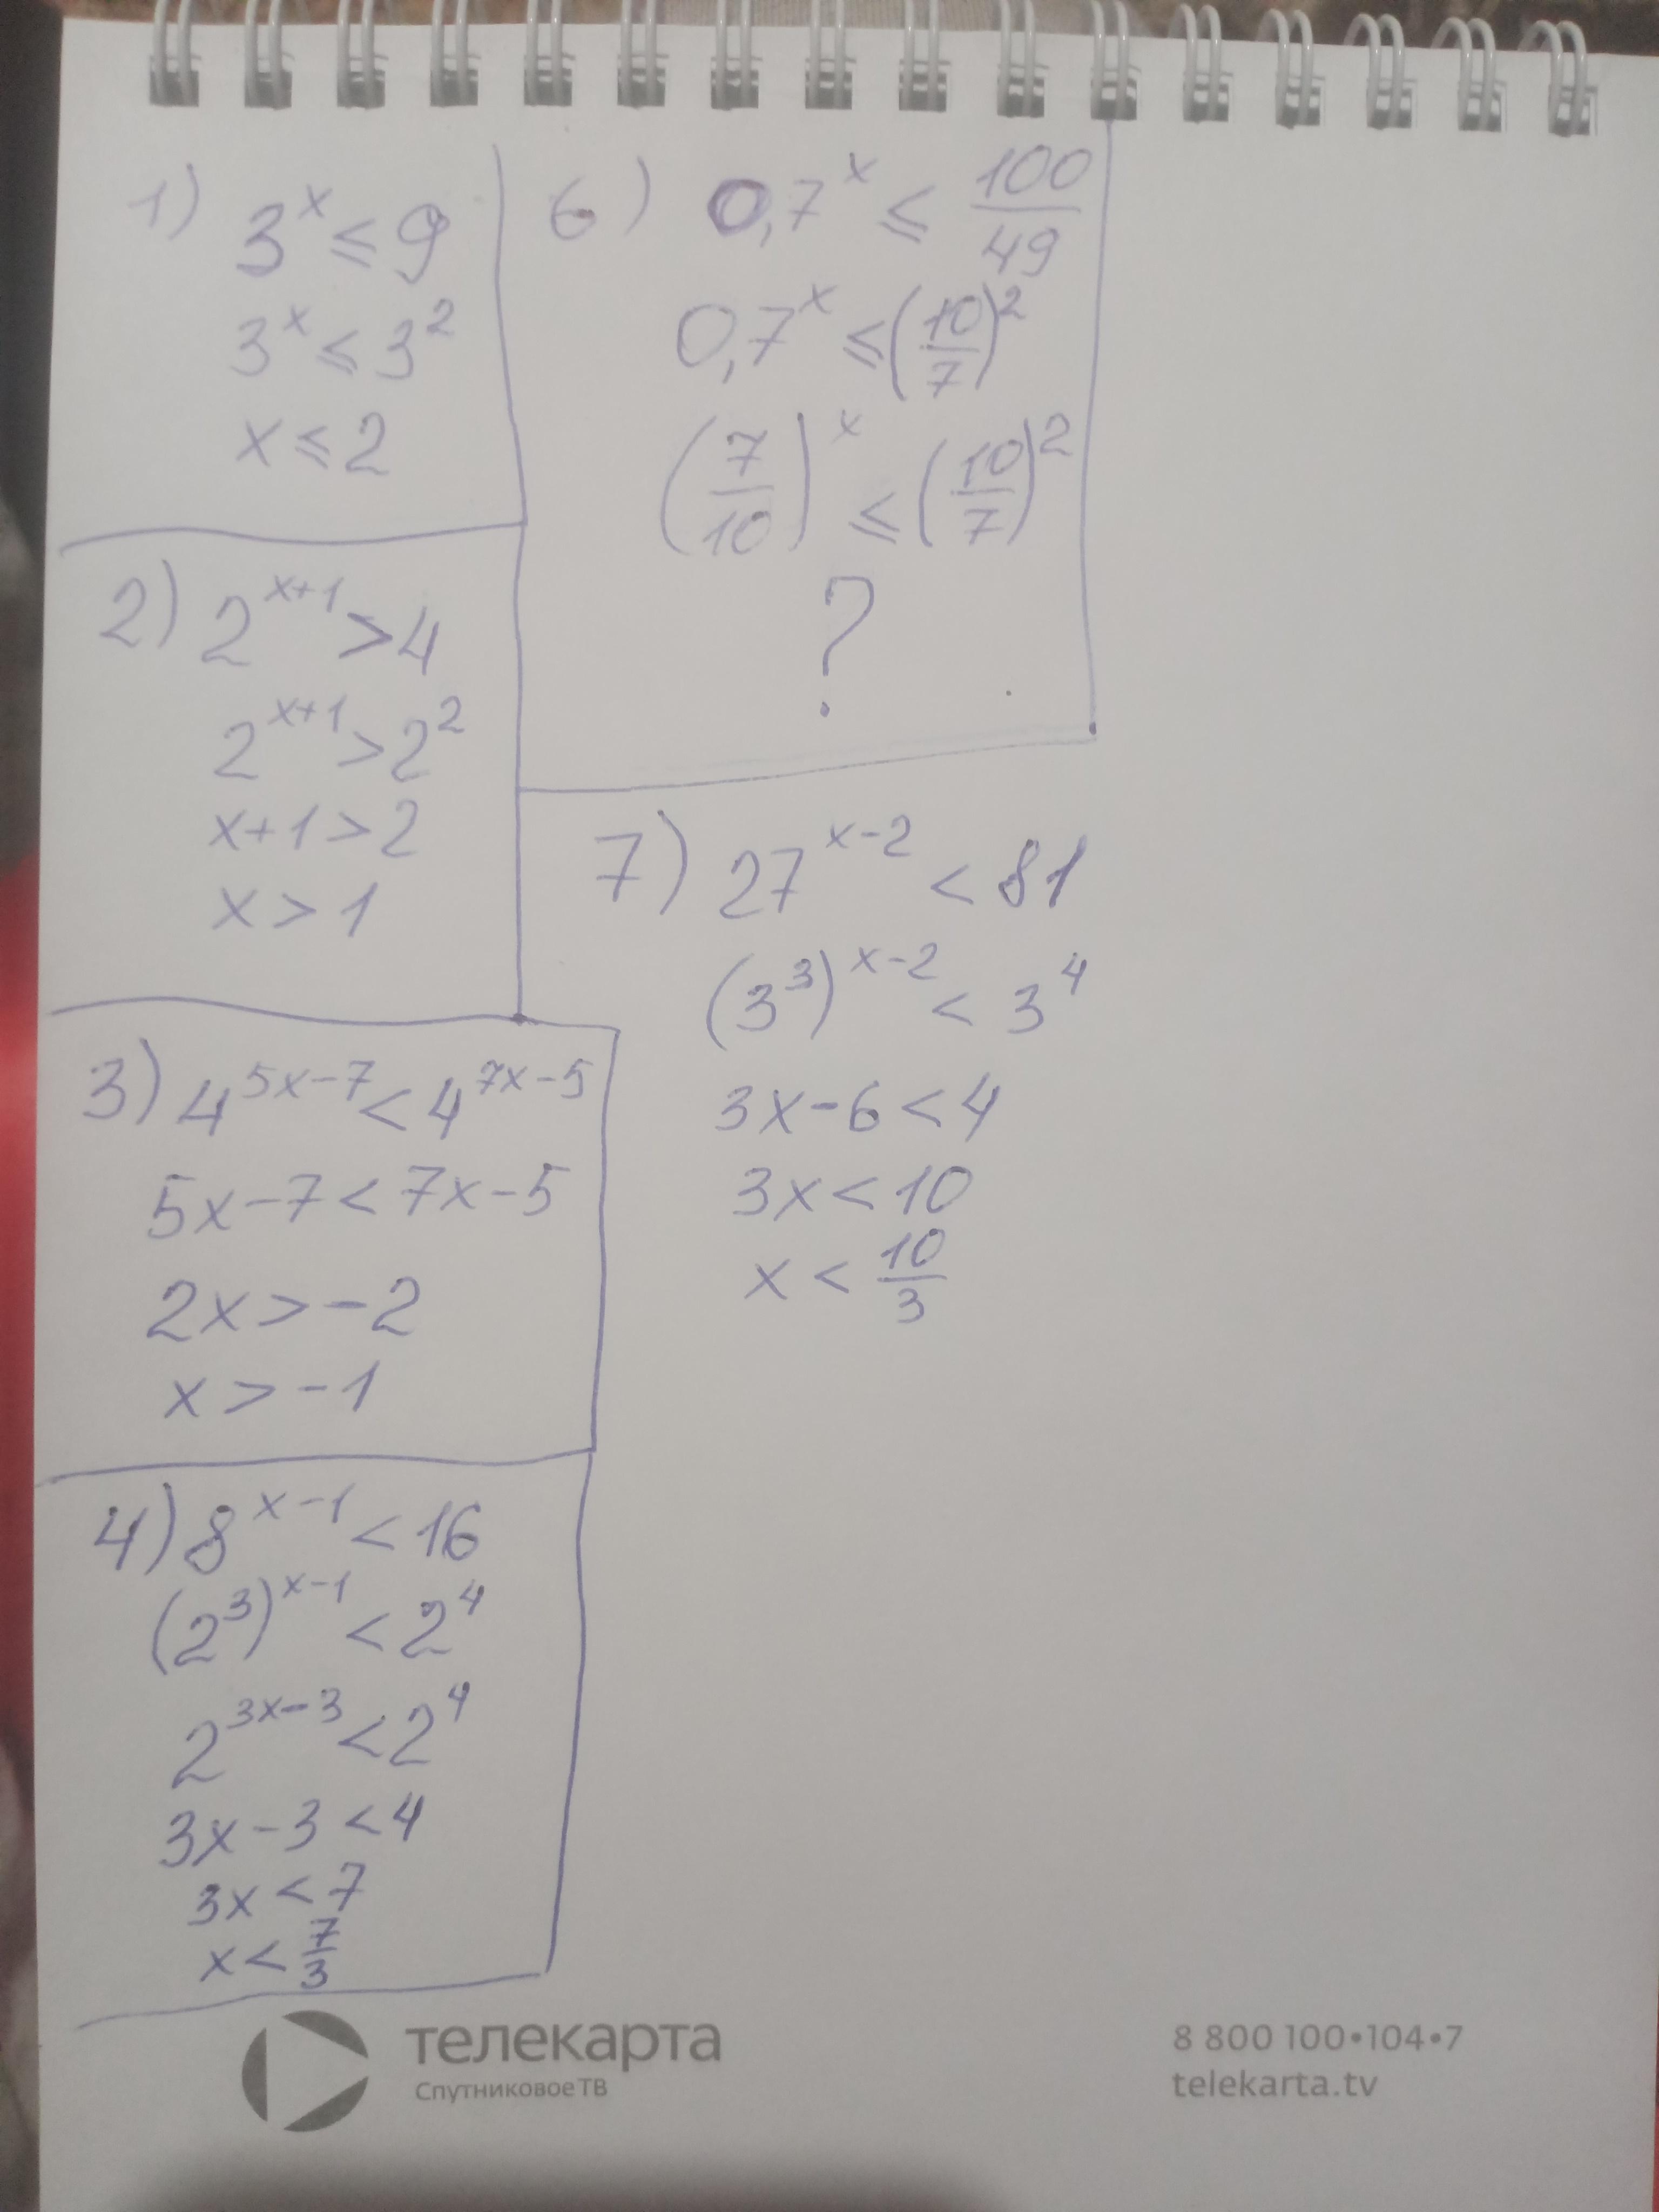 1) 3^x ≤ 9
3^x ≤ 3^2
x ≤ 2
2) 2^(x+1) > 4
2^(x+1) > 2^2
x+1 > 2
x > 1
3) 4^(5x-7) < 4^(7x-5)
5x-7 < 7x-5
2x > -2
x > -1
4) 8^(x-1) < 16
(2^3)^(x-1) < 2^4
2^(3x-3) < 2^4
3x-3 < 4
3x < 7
x < 7/3
6) 0,7^x ≤ 100/49
0,7^x ≤ (10/7)^2
(7/10)^x ≤ (10/7)^2
?
7) 27^(x-2) < 81
(3^3)^(x-2) < 3^4
3x-6 < 4
3x < 10
x < 10/3
телекарта
Спутниковое ТВ
8 800 100•104•7
telekarta.tv